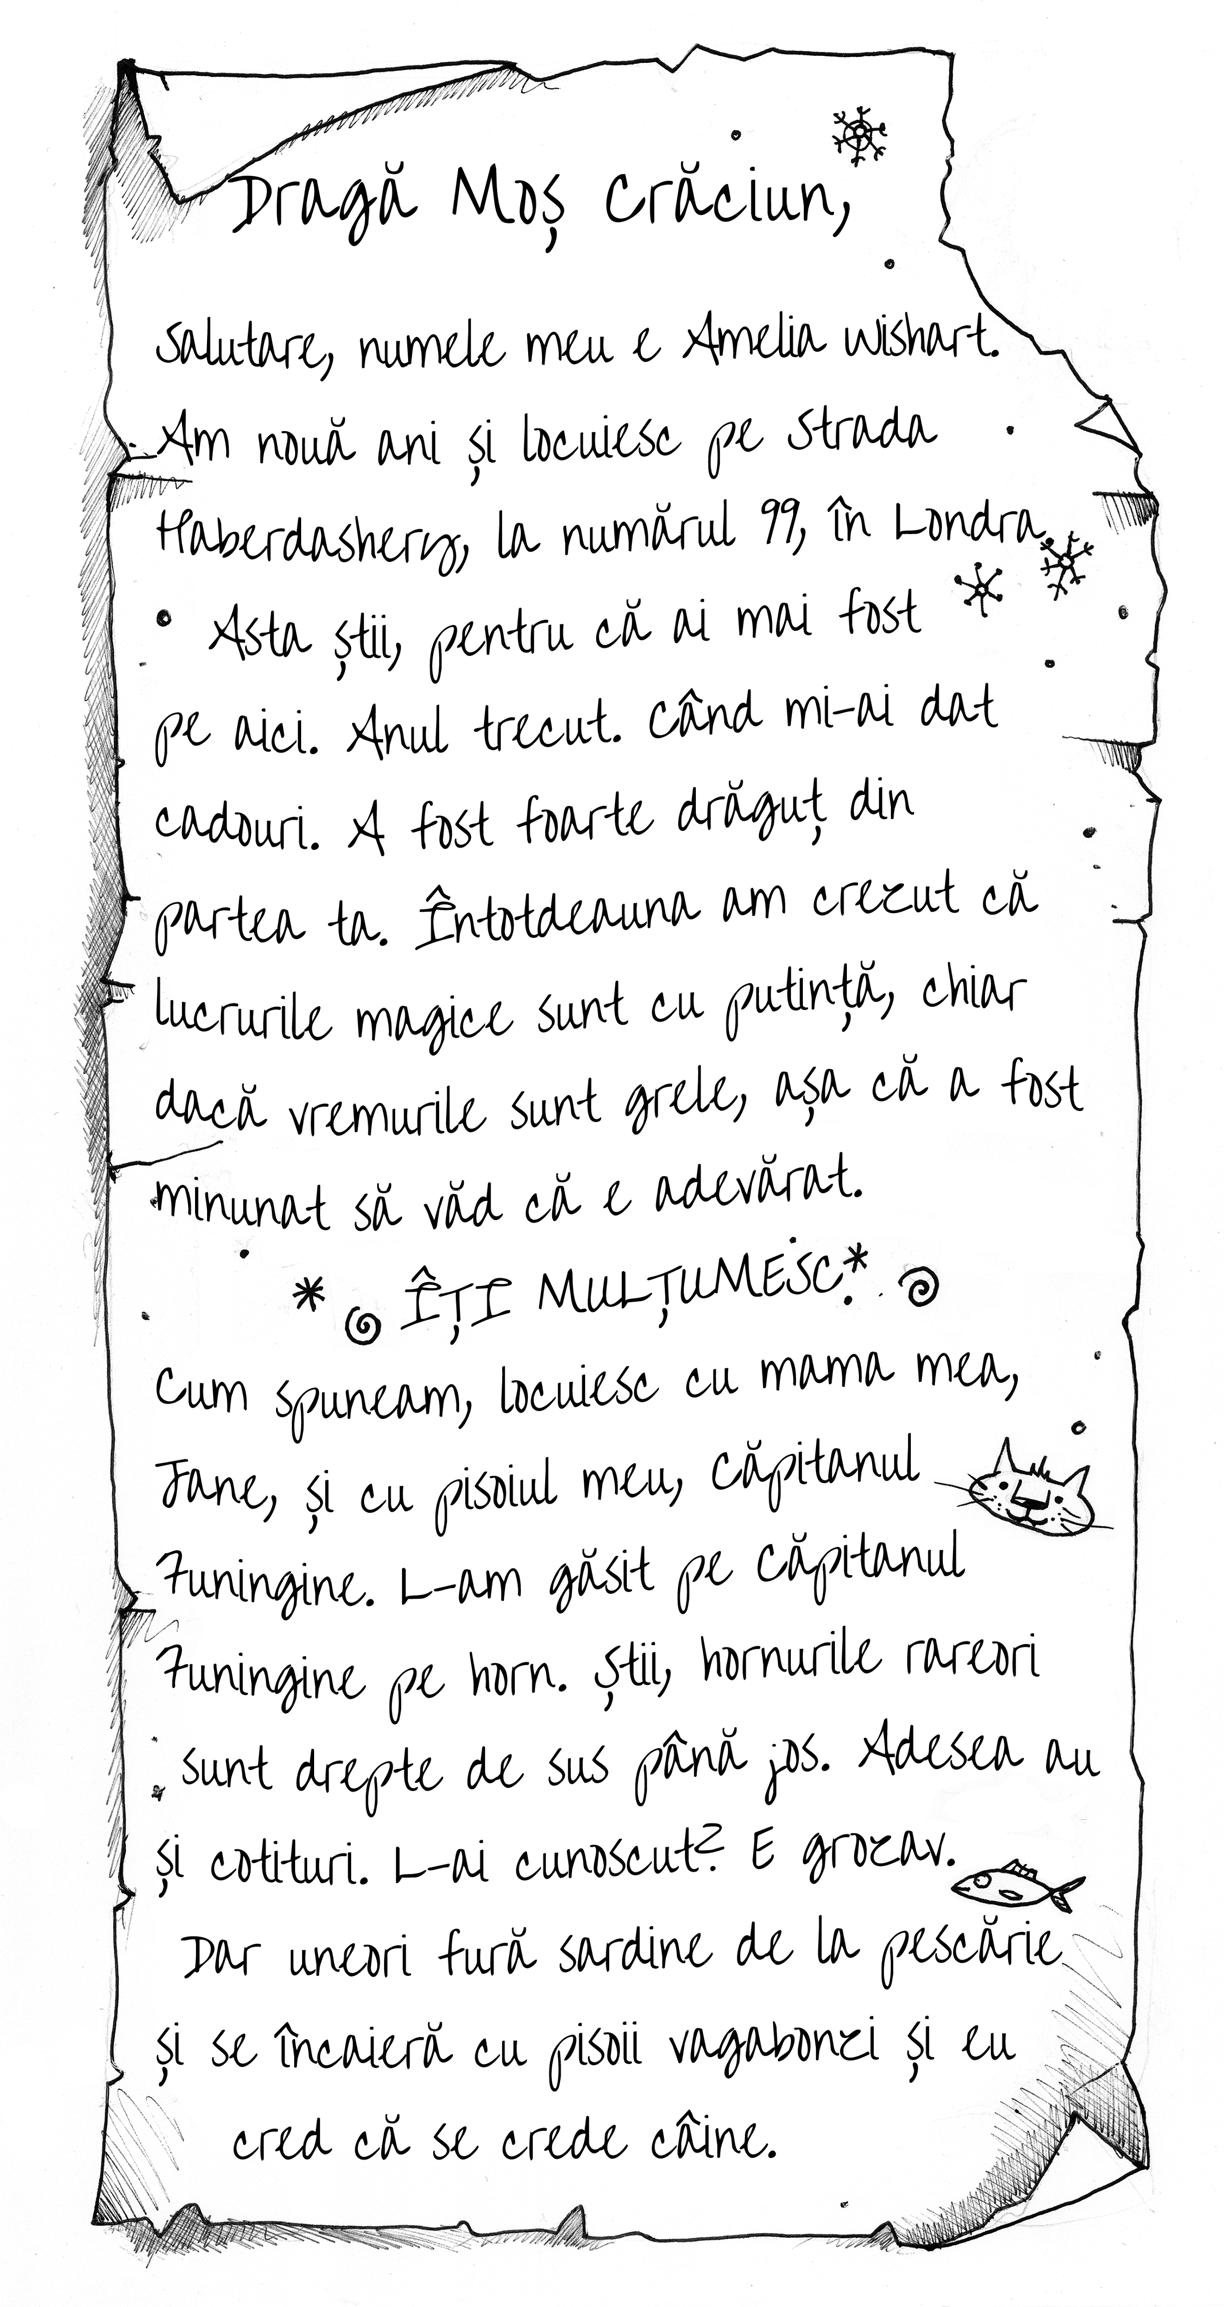 Dragă Moș Crăciun,
Salutare, numele meu e Amelia Wishart.
Am nouă ani și locuiesc pe Strada
Haberdashery, la numărul 99, în Londra.
Asta știi, pentru că ai mai fost
pe aici. Anul trecut. Când mi-ai dat
cadouri. A fost foarte drăguț din
partea ta. Întotdeauna am crezut că
lucrurile magice sunt cu putință, chiar
dacă vremurile sunt grele, așa că a fost
minunat să văd că e adevărat.
ÎȚI MULȚUMESC.
Cum spuneam, locuiesc cu mama mea,
Jane, și cu pisoiul meu, Căpitanul
Funingine. L-am găsit pe Căpitanul
Funingine pe horn. Știi, hornurile rareori
sunt drepte de sus până jos. Adesea au
și cotituri. L-ai cunoscut? E grozav.
Dar uneori fură sardine de la pescărie
și se încaieră cu pisoii vagabonzi și eu
cred că se crede câine.